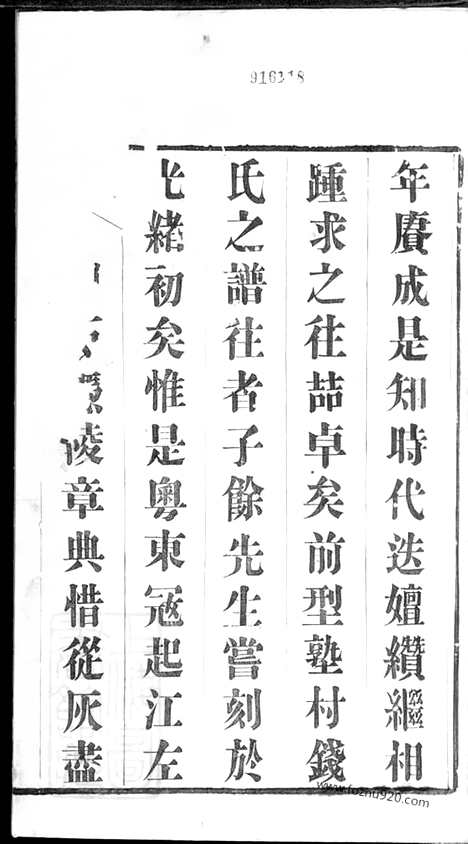 916318
年賡成是知時代迭嬗纘繼相
踵求之往喆卓矣前型塾村錢
氏之譜往者子餘先生嘗刻於
光緒初矣惟是粵東寇起江左
陵章典惜從灰盡
www.fozhu920.com